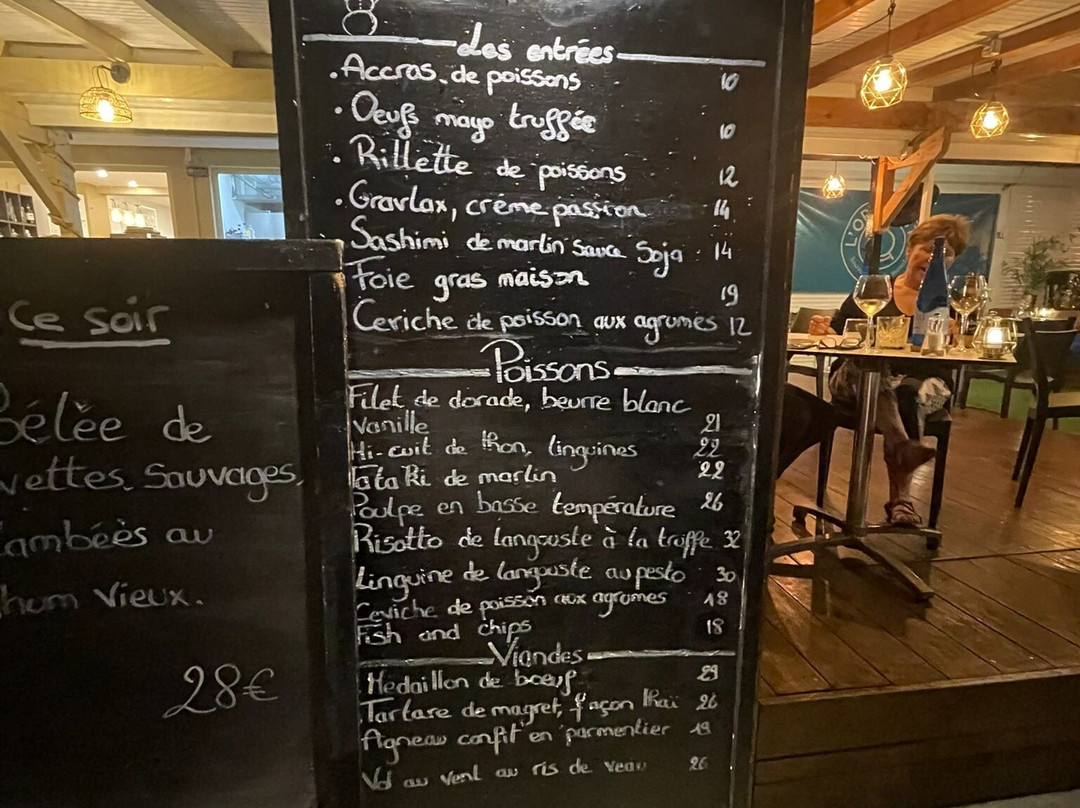 Les entrées
. Accras de poissons 10
. Oeufs mayo truffée 10
. Rillette de poissons 12
. Gravlax, crème passion 14
Sashimi de marlin sauce Soja 14
Foie gras maison 19
Ceviche de poisson aux agrumes 12
Poissons
Filet de dorade, beurre blanc
vanille 21
Mi-cuit de thon, linguines 22
Tataki de marlin 22
Poulpe en basse température 26
Risotto de langouste à la truffe 32
Linguine de langouste au pesto 30
Ceviche de poisson aux agrumes 18
Fish and chips 18
Viandes
Medaillon de boeuf 29
Tartare de magret, façon thaï 26
Agneau confit en parmentier 19
Vol au vent au ris de veau 26
Ce soir
Pélèe de
vettes Sauvages,
lambéès au
hum Vieux.
28€